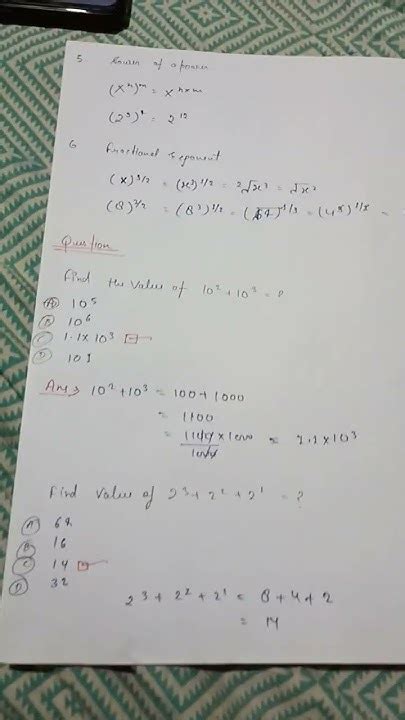 5. Power of a power
(xⁿ)ᵐ = xⁿˣᵐ
= 2¹²
6 Fractional Exponent
(x)³ᐟ² = (x³)¹ᐟ² = ²√x³ = √x³
= (8³)¹ᐟ² =
Question
Find the value of 10² + 10³ = ?
(A) 10⁵
(B) 10⁶
(C) 1.1 × 10³
(D)
Ans 10² + 10³ = 100 + 1000
= 1100
= 1100 × 1000 / 1000 = 1.1 × 10³
Find value of 2³ + 2² + 2¹ = ?
(A) 64
(B) 16
(C) 14
(D) 32
2³ + 2² + 2¹ = 8 + 4 + 2
= 14